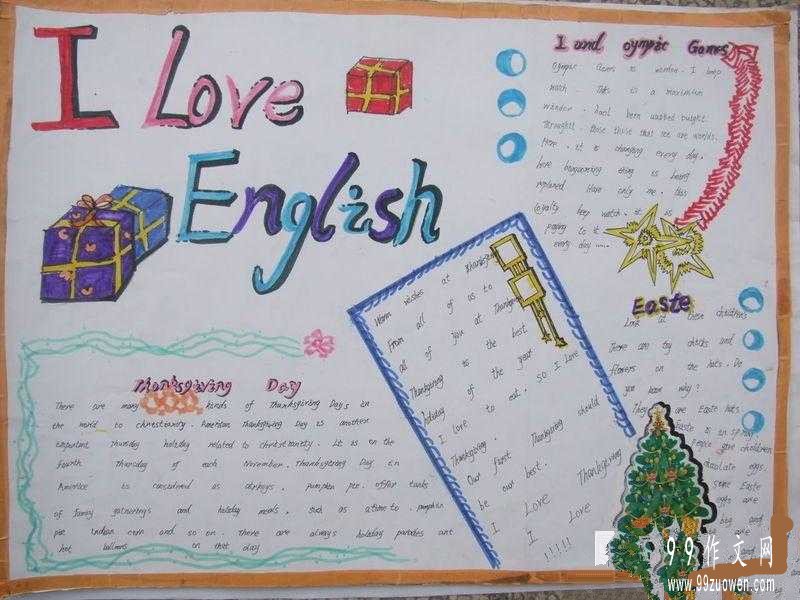 I Love
English
I and olympic Games
much. This is a maximum
window. had been washed bright.
More, it is changing every day.
here thing is being
replaced Have only me. this
loyalty keep watch. it is
paying to it
every day ......
Easte
Look at these childrens
There are toy chicks and
flowers in the hats. Do
you know why?
They are Easte hats.
Easte is in spring
People give children
chocolate eggs.
some Easte
eggs are
big and
Warm wishes at Thanksgiving
From all of us to
all of you at Thanksgiving
Thanksgiving is the best
holiday of the year
I Love to eat. SO I Love
Thanksgiving.
Our first Thanksgiving should
be our best.
I Love Thanksgiving
I Love
!!!!!
Thanksgiving Day
There are many kinds of Thanksgiving Days in
the world to christianity. American Thanksgiving Day is another
important Thursday holiday related to christianity. It is on the
fourth Thursday of each November. Thanksgiving Day in
America is consumed as turkeys, pumpkin pie. offer tanks
of family gatherings and holiday meals, such as a time to. pumpkin
pie Indian corn and so on. There are always holiday parades and
hot balloons in that day
99作文网
www.99zuowen.com